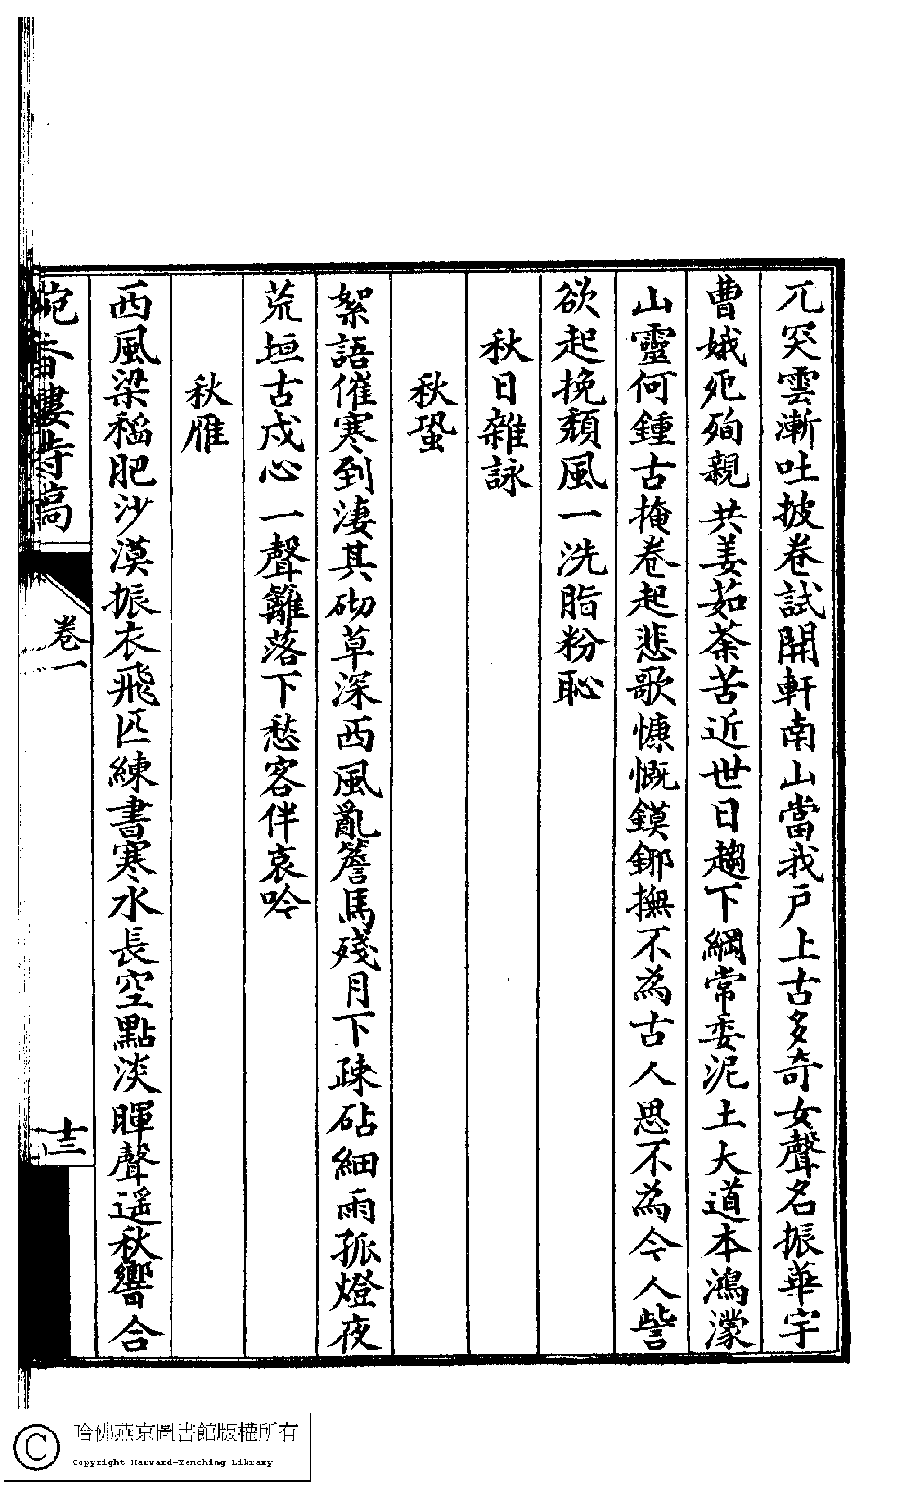 兀突雲漸吐披卷試開軒南山當我戶上古多奇女聲名振華宇
曹娥死殉親共姜茹荼苦近世日趨下綱常委泥土大道本鴻濛
山靈何鍾古掩卷起悲歌慷慨鏌鋣撫不為古人思不為今人訾
欲起挽頹風一洗脂粉恥
秋日雜詠
秋蛩
絮語催寒到淒其砌草深西風亂簷馬殘月下疎砧細雨孤燈夜
荒垣古戍心一聲籬落下愁客伴哀吟
秋雁
西風梁稻肥沙漠振衣飛匹練書寒水長空點淡暉聲遥秋響合
香樓詩稿
卷一
十三
哈佛燕京圖書館版權所有
Copyright Harvard-Yenching Library